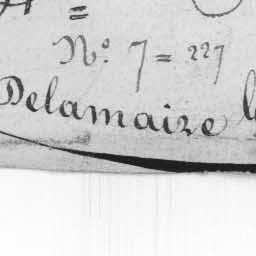 N.º 7 = 227
Delamaire